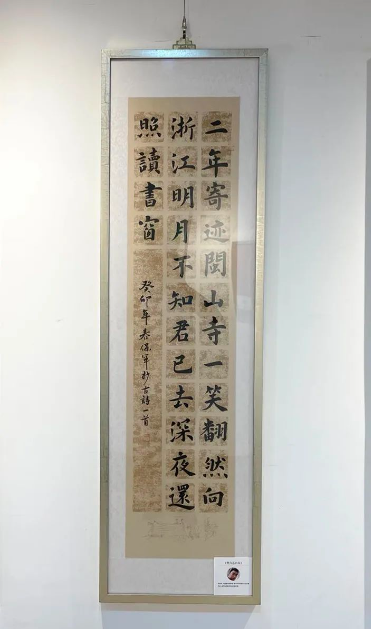 二年寄迹閩山寺一笑翻然向
浙江明月不知君已去深夜還
照讀書窗
癸卯年 泰保軍抄古詩一首